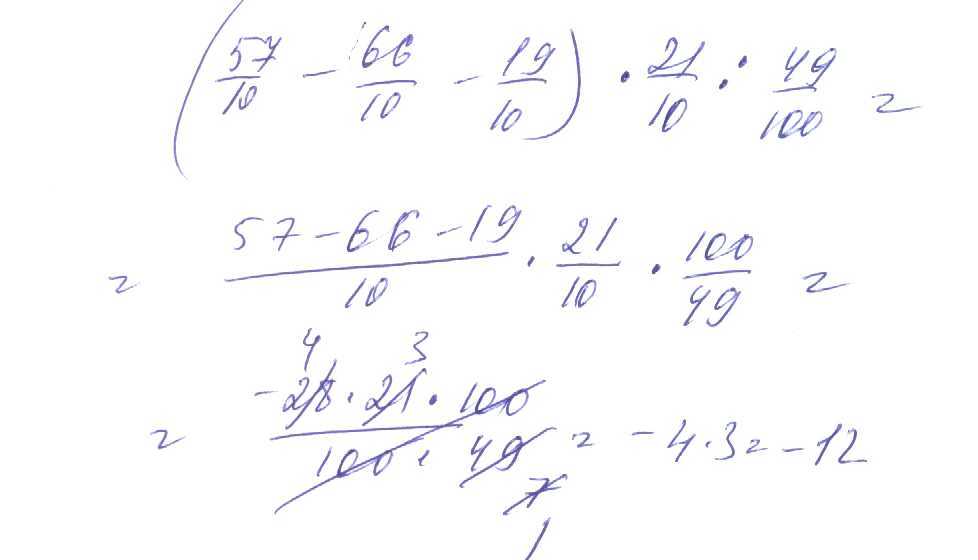 (57/10 - 66/10 - 19/10) · 21/10 : 49/100 =
= (57 - 66 - 19)/10 · 21/10 · 100/49 =
= (-28 · 21 · 100)/(100 · 49) = -4·3 = -12
4 3
7
1